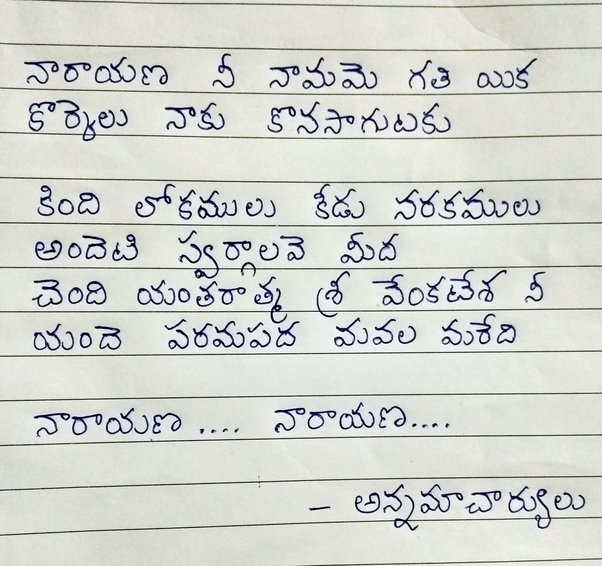 నారాయణ నీ నామమె గతి యిక
కొర్కెలు నాకు కొనసాగుటకు
కింది లోకములు కీడు నరకములు
అందెటి స్వర్గాలవె మీద
చెంది యంతరాత్మ శ్రీ వేంకటేశ నీ
యందె పరమపద మవల మరేది
నారాయణ .... నారాయణ....
– అన్నమాచార్యులు